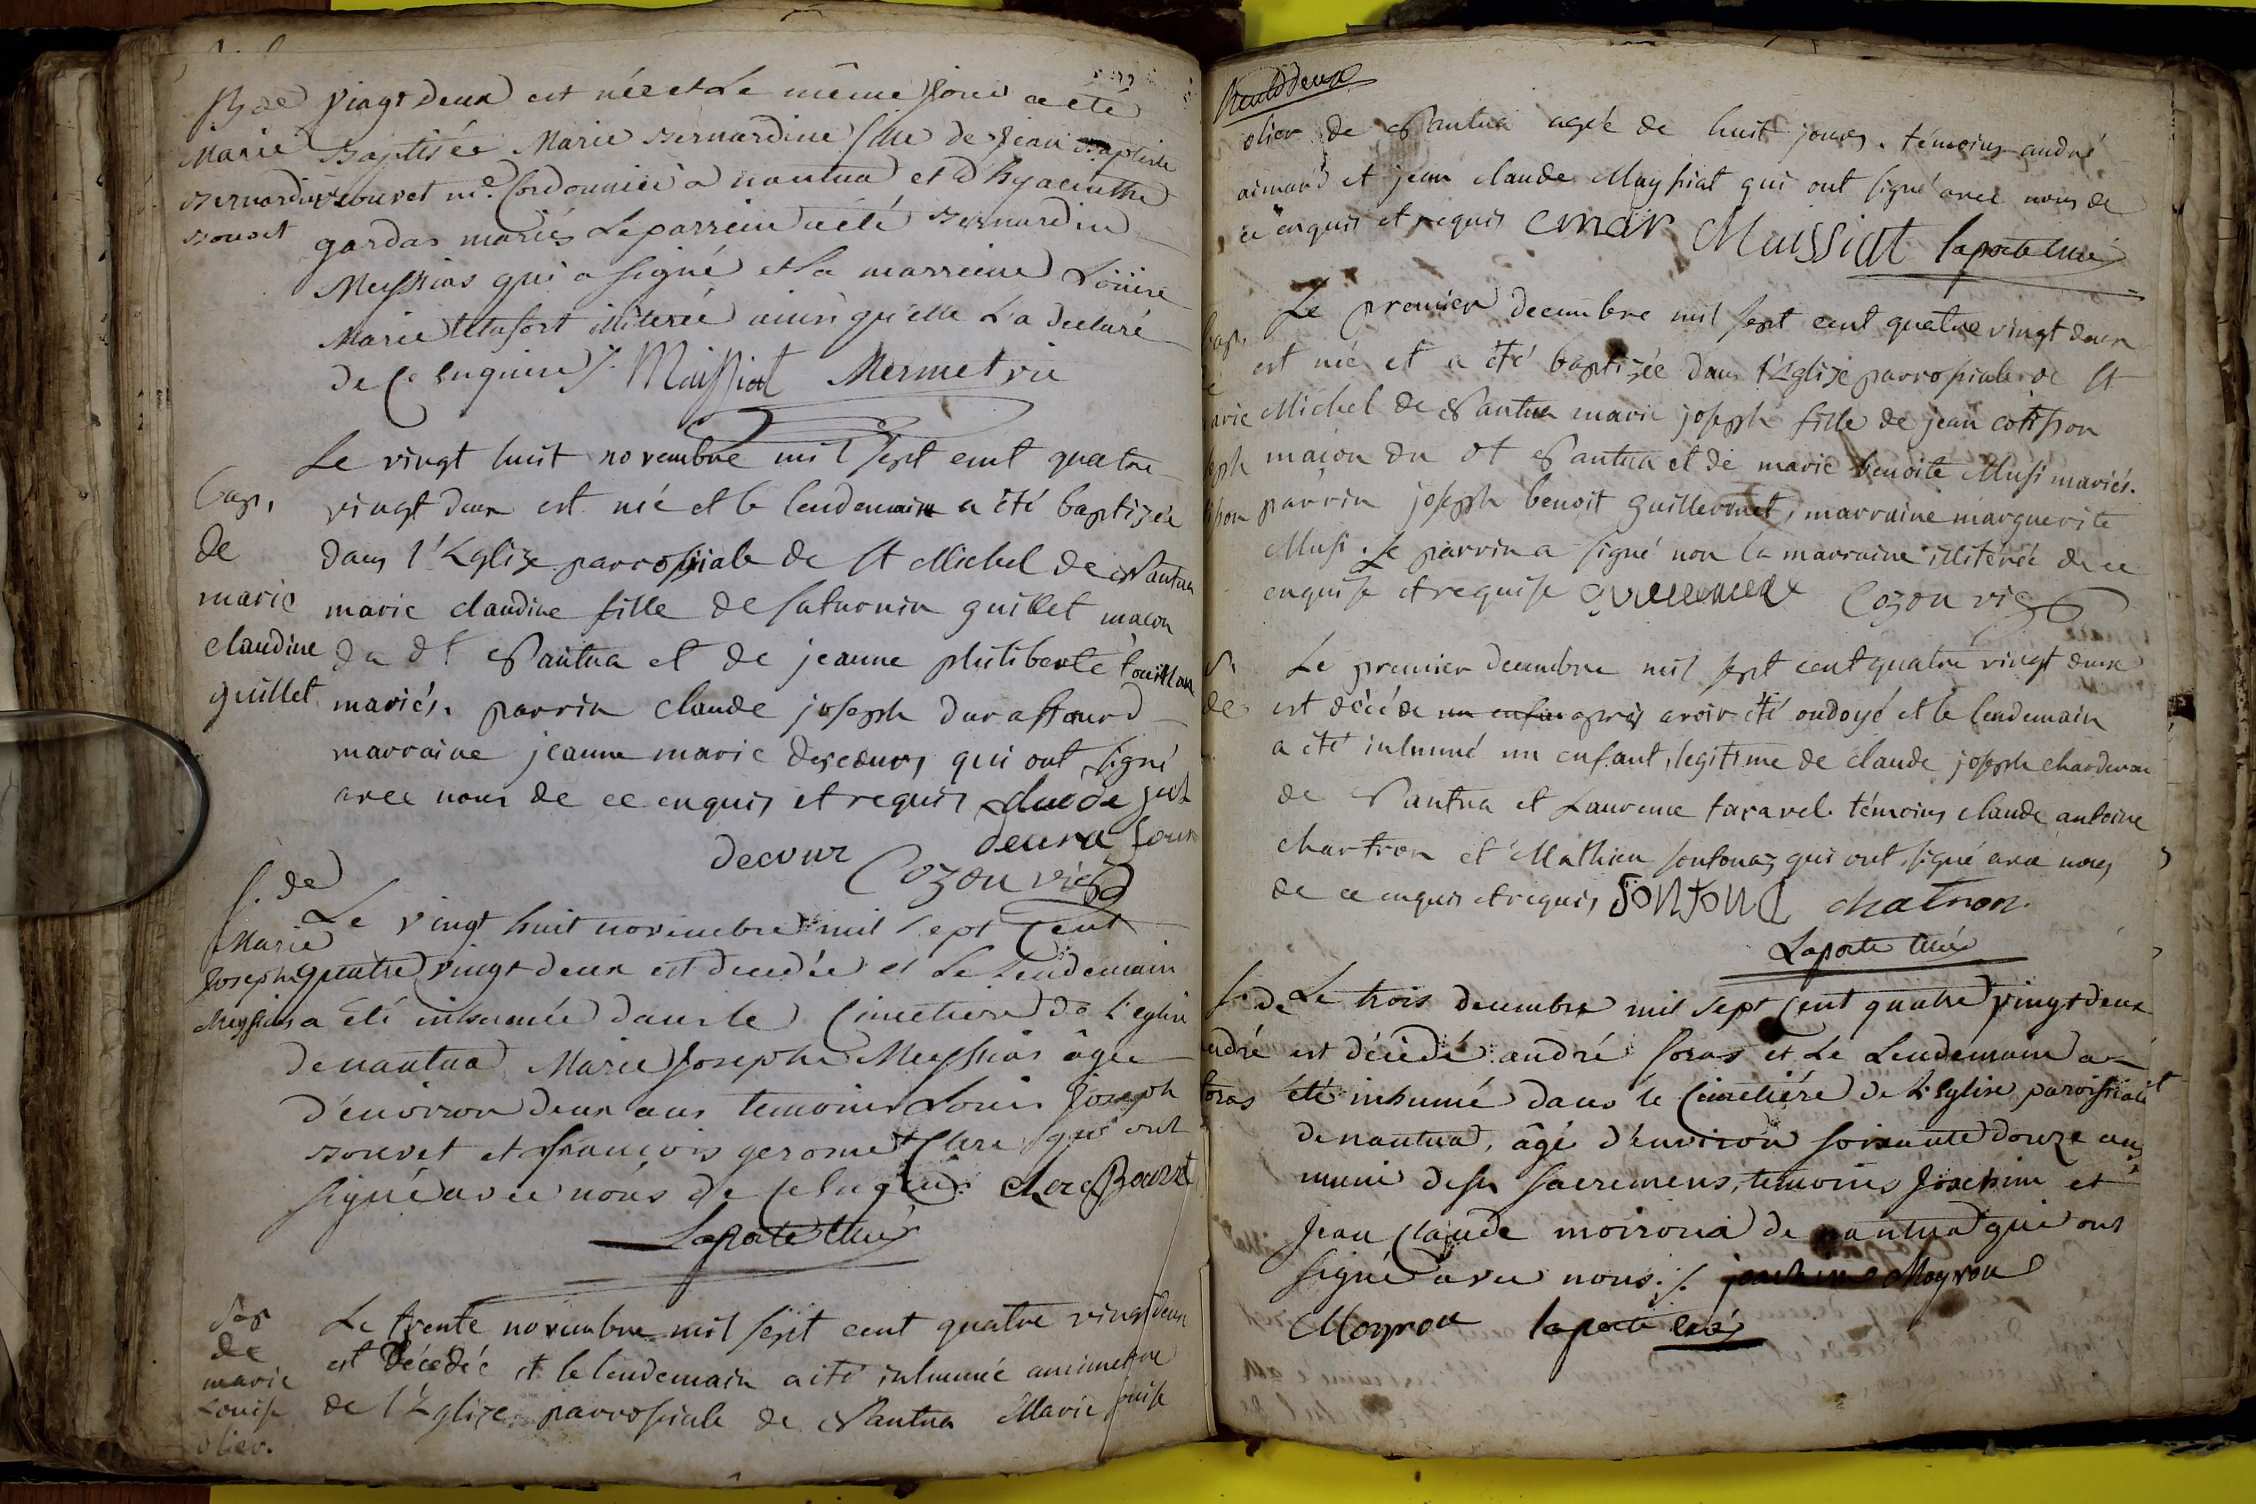 B. de vingt deux est née et Le même Jour a été
Marie Baptisée Marie Bernardine fille de Jean Baptiste
Bernardine Bouvet m.e Cordonnier à nantua et d'hyacinthe
Bouvet gardas mariés Le parrein a été Bernardin
Meyssias qui a signé et La marreine Loüise
Marie illiterée ainsi qu'elle L'a declaré
de Ce Enquise ∫. Maissiat Mermet vic
Le vingt huit novembre mil sept cent quatre
Bap. vingt deux est née et le lendemain a été baptizée
de dans l'Eglize parrossiale de St Michel de Nantua
marie marie claudine fille de saturnin guillet maçon
claudine du dt Nantua et de jeanne philiberte
guillet mariés. parrin claude joseph duraffourd
marraine jeanne marie descœurs qui ont signé
avec nous de ce enquis et requis claude
decour
Cozon vic
S. de
Le vingt huit novembre mil sept Cent
Marie
Josephe quatre vingt deux est decedée et Le Lendemain
Meyssias a Eté inhumée dans le Cimetiere de L'eglise
de nantua Marie Josephe Meyssias âgée
d'environ deux ans temoins Louis Joseph
Bouvet et françois gerome Clerc qui ont
signé avec nous de Ce Enquis Clerc Bouvet
Laporte curé
Sep Le trente novembre mil sept cent quatre vingt deux
de est décédée et le lendemain a été inhumée au cimetire
marie
Louise de l'Eglize parrossiale de Nantua Marie Louise
olier.
olier de Nantua agée de huit jours. témoins andré
aimard et jean claude Mayssiat qui ont signé avec nous de
ce enquis et requis emar Maissiat laporte curé
Le premier decembre mil sept cent quatre vingt deux
Bap. est née et a été baptizée dans l'Eglize parrossiale de St
Michel de Nantua marie joseph fille de jean cotisson
maçon du dt Nantua et de marie benoite Musi mariés.
parrin joseph benoit guillermet, marraine marguerite
Musi. Le parrin a signé non la marraine illiterée de ce
enquise et requise Cozon vic
S. Le premier decembre mil sept cent quatre vingt deux
de est décédé un enfan apres avoir été ondoyé et le lendemain
a été inhumé un enfant legitime de claude joseph
de Nantua et Laurence taravel témoins claude antoine
chartron et Mathieu sontonas qui ont signé avec nous
de ce enquis et requis chatron
Laporte curé
S. de Le trois decembre mil sept Cent quatre vingt deux
andré est décédé andré soras et Le Lendemain a
soras été inhumé dans le Cimetiére de L'Eglise paroissiale
de nantua, âgé d'environ soixante douze ans
muni de ses sacremens, temoins Joachim et
Jean Claude moiroud de nantua qui ont
signé avec nous ∫. Moyroud
Moyrou laporte curé